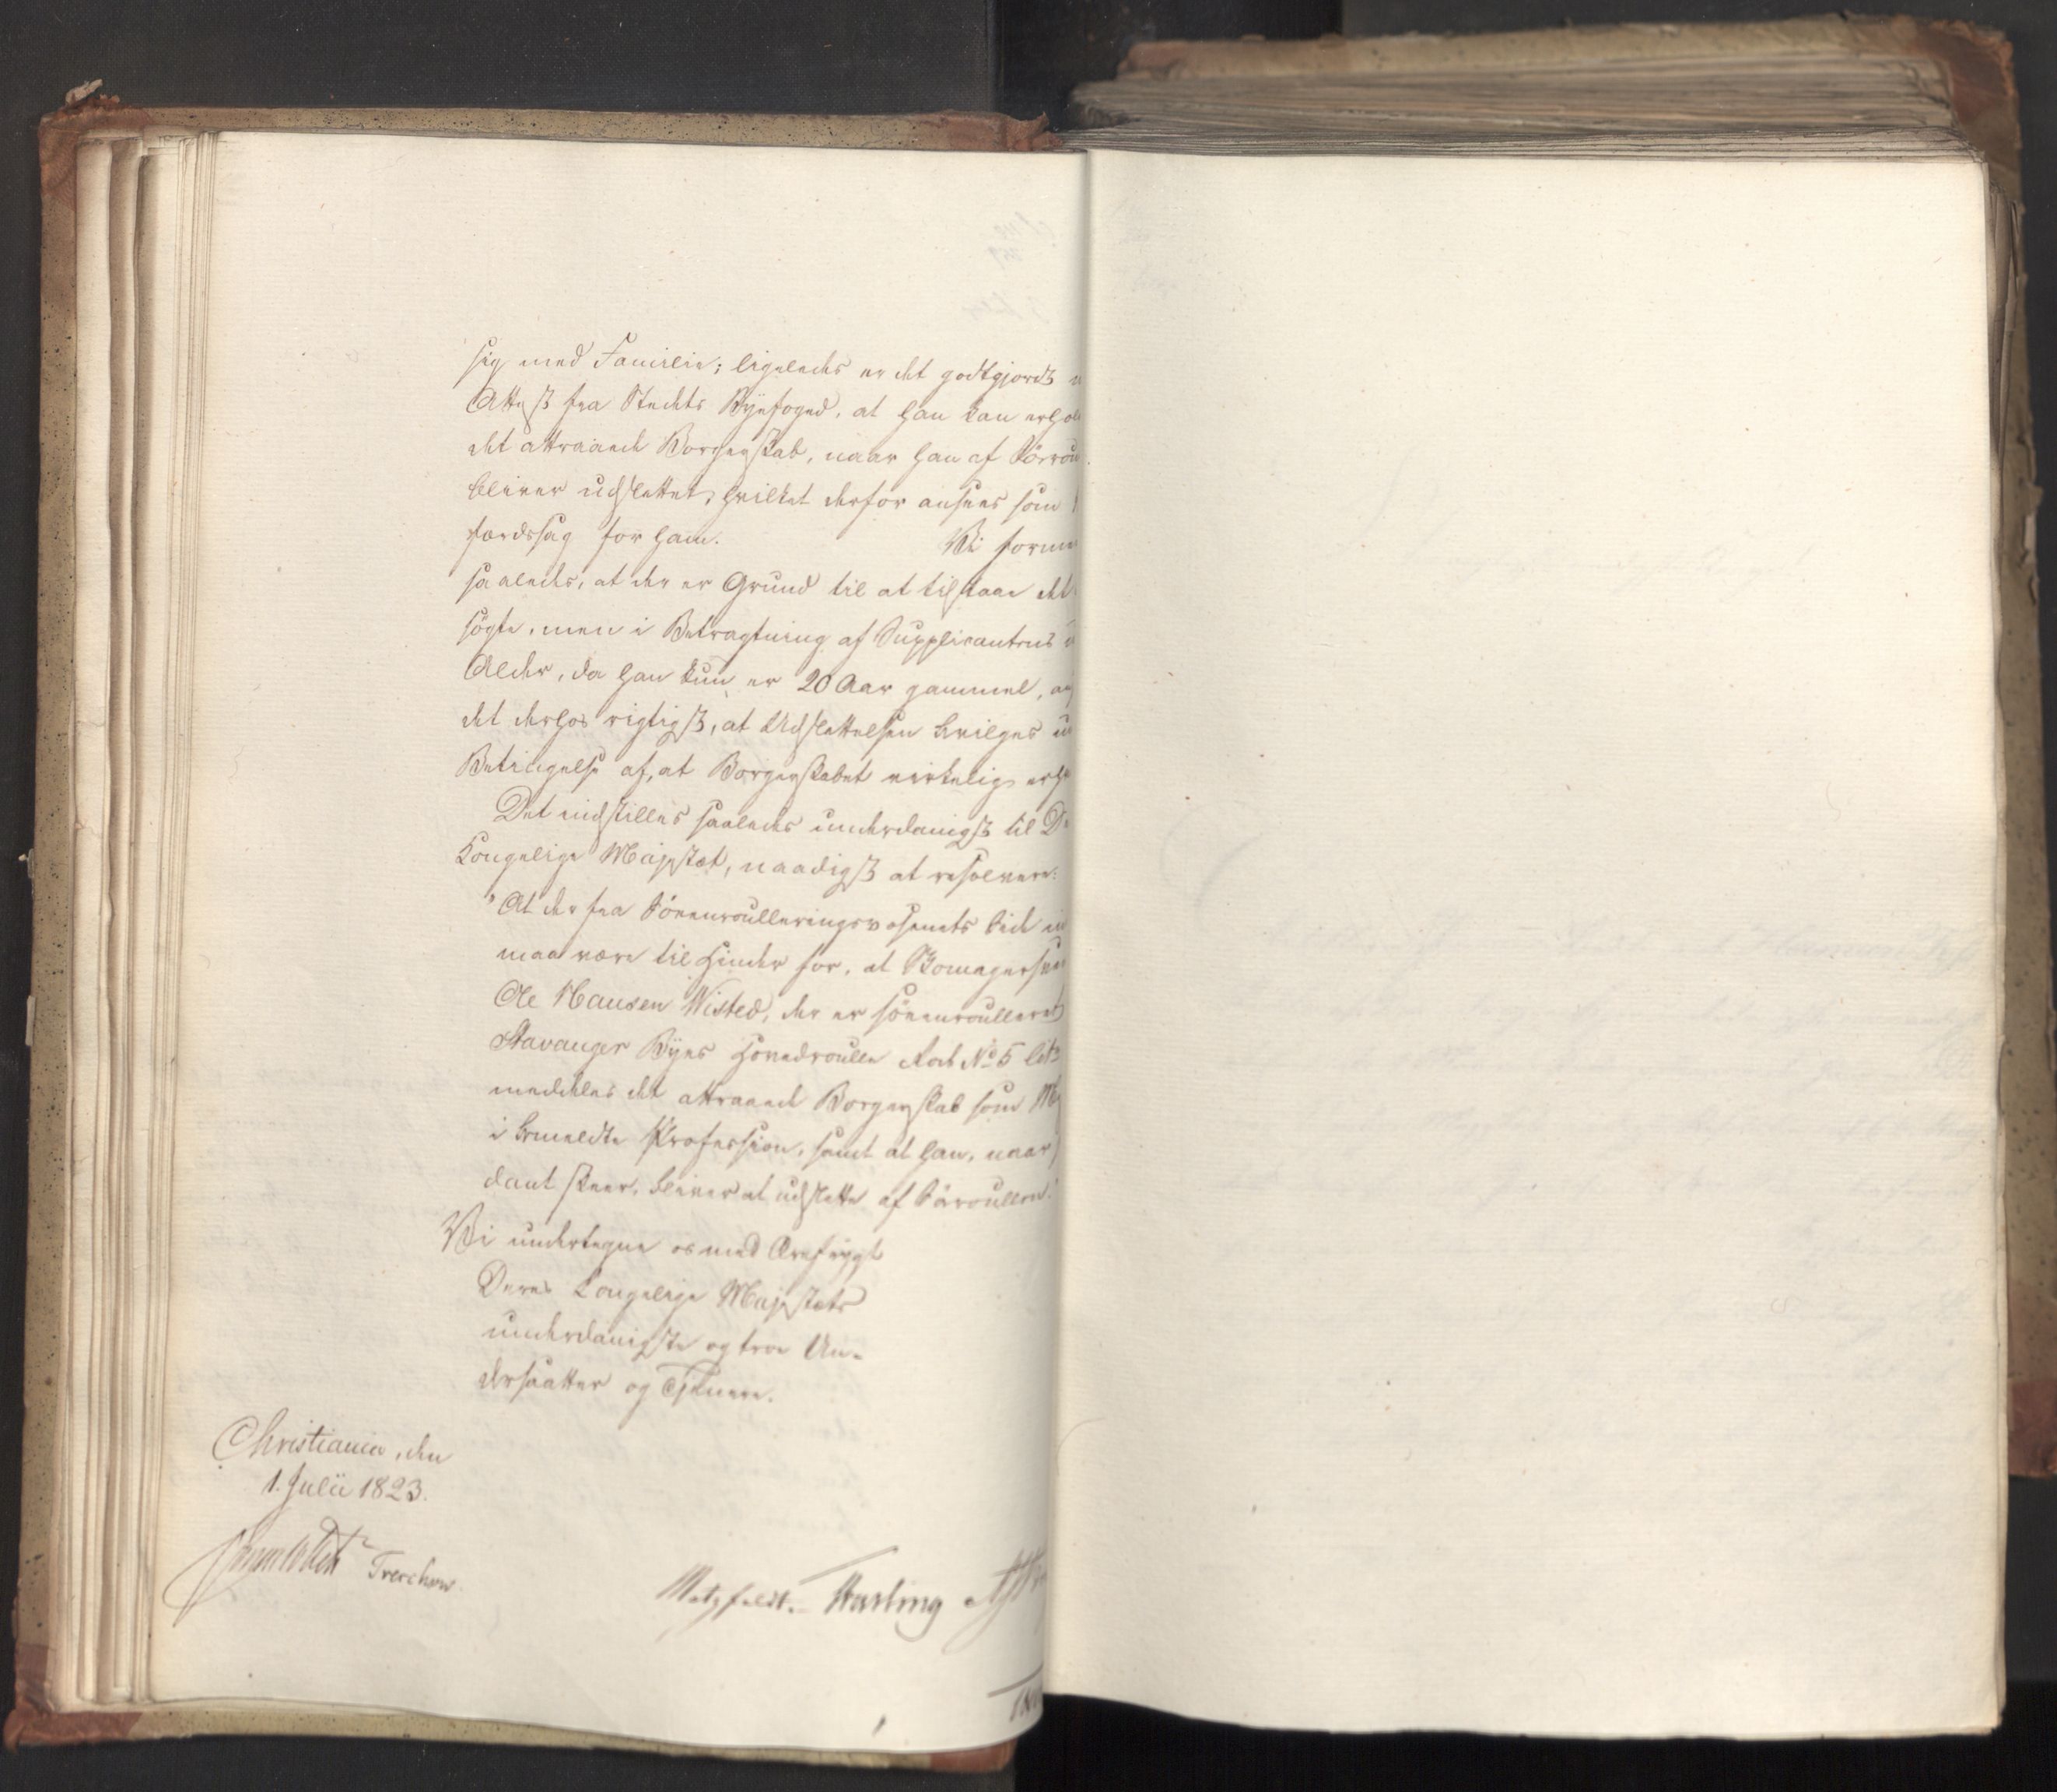 sig med Familie; ligeledes er det godtgjordt
Attest fra Stedets Byefoged, at han kan erhol
det attraaede Borgerskab, naar han af Sörou
bliver udslettet, hvilket derfor ansees som
færdssag for ham. Vi forme
saaledes, at der er Grund til at tilstaae det
søgte, men i Betragtning af Supplicantens
Alder, da han kun er 20 Aar gammel, an
det derhos rigtigst, at Udslettelsen bevilges
Betingelse af, at Borgerskabet virkelig erho
Det indstilles saaledes underdanigst til De
Kongelige Majestæt, naadigst at resolvere:
"At der fra Söeenroulleringsvæsenets Side
maa være til Hinder for, at Skomagersve
Ole Hansen Wisted, der er söeenroulleret
Stavanger Byes Hovedroulle Lod No 5 litr
meddeles det attraaede Borgerskab som Me
i bemeldte Profession, samt at han, naar
dant skeer, bliver at udslette af Söroullen."
Vi undertegne os med Ærefrygt
Deres Kongelige Majestæts
underdanigste og troe Un-
dersaatter og Tjenere.
Christiania, den
1. Julii 1823.
Sommerhielm Treschow
Motzfeldt. Hasting